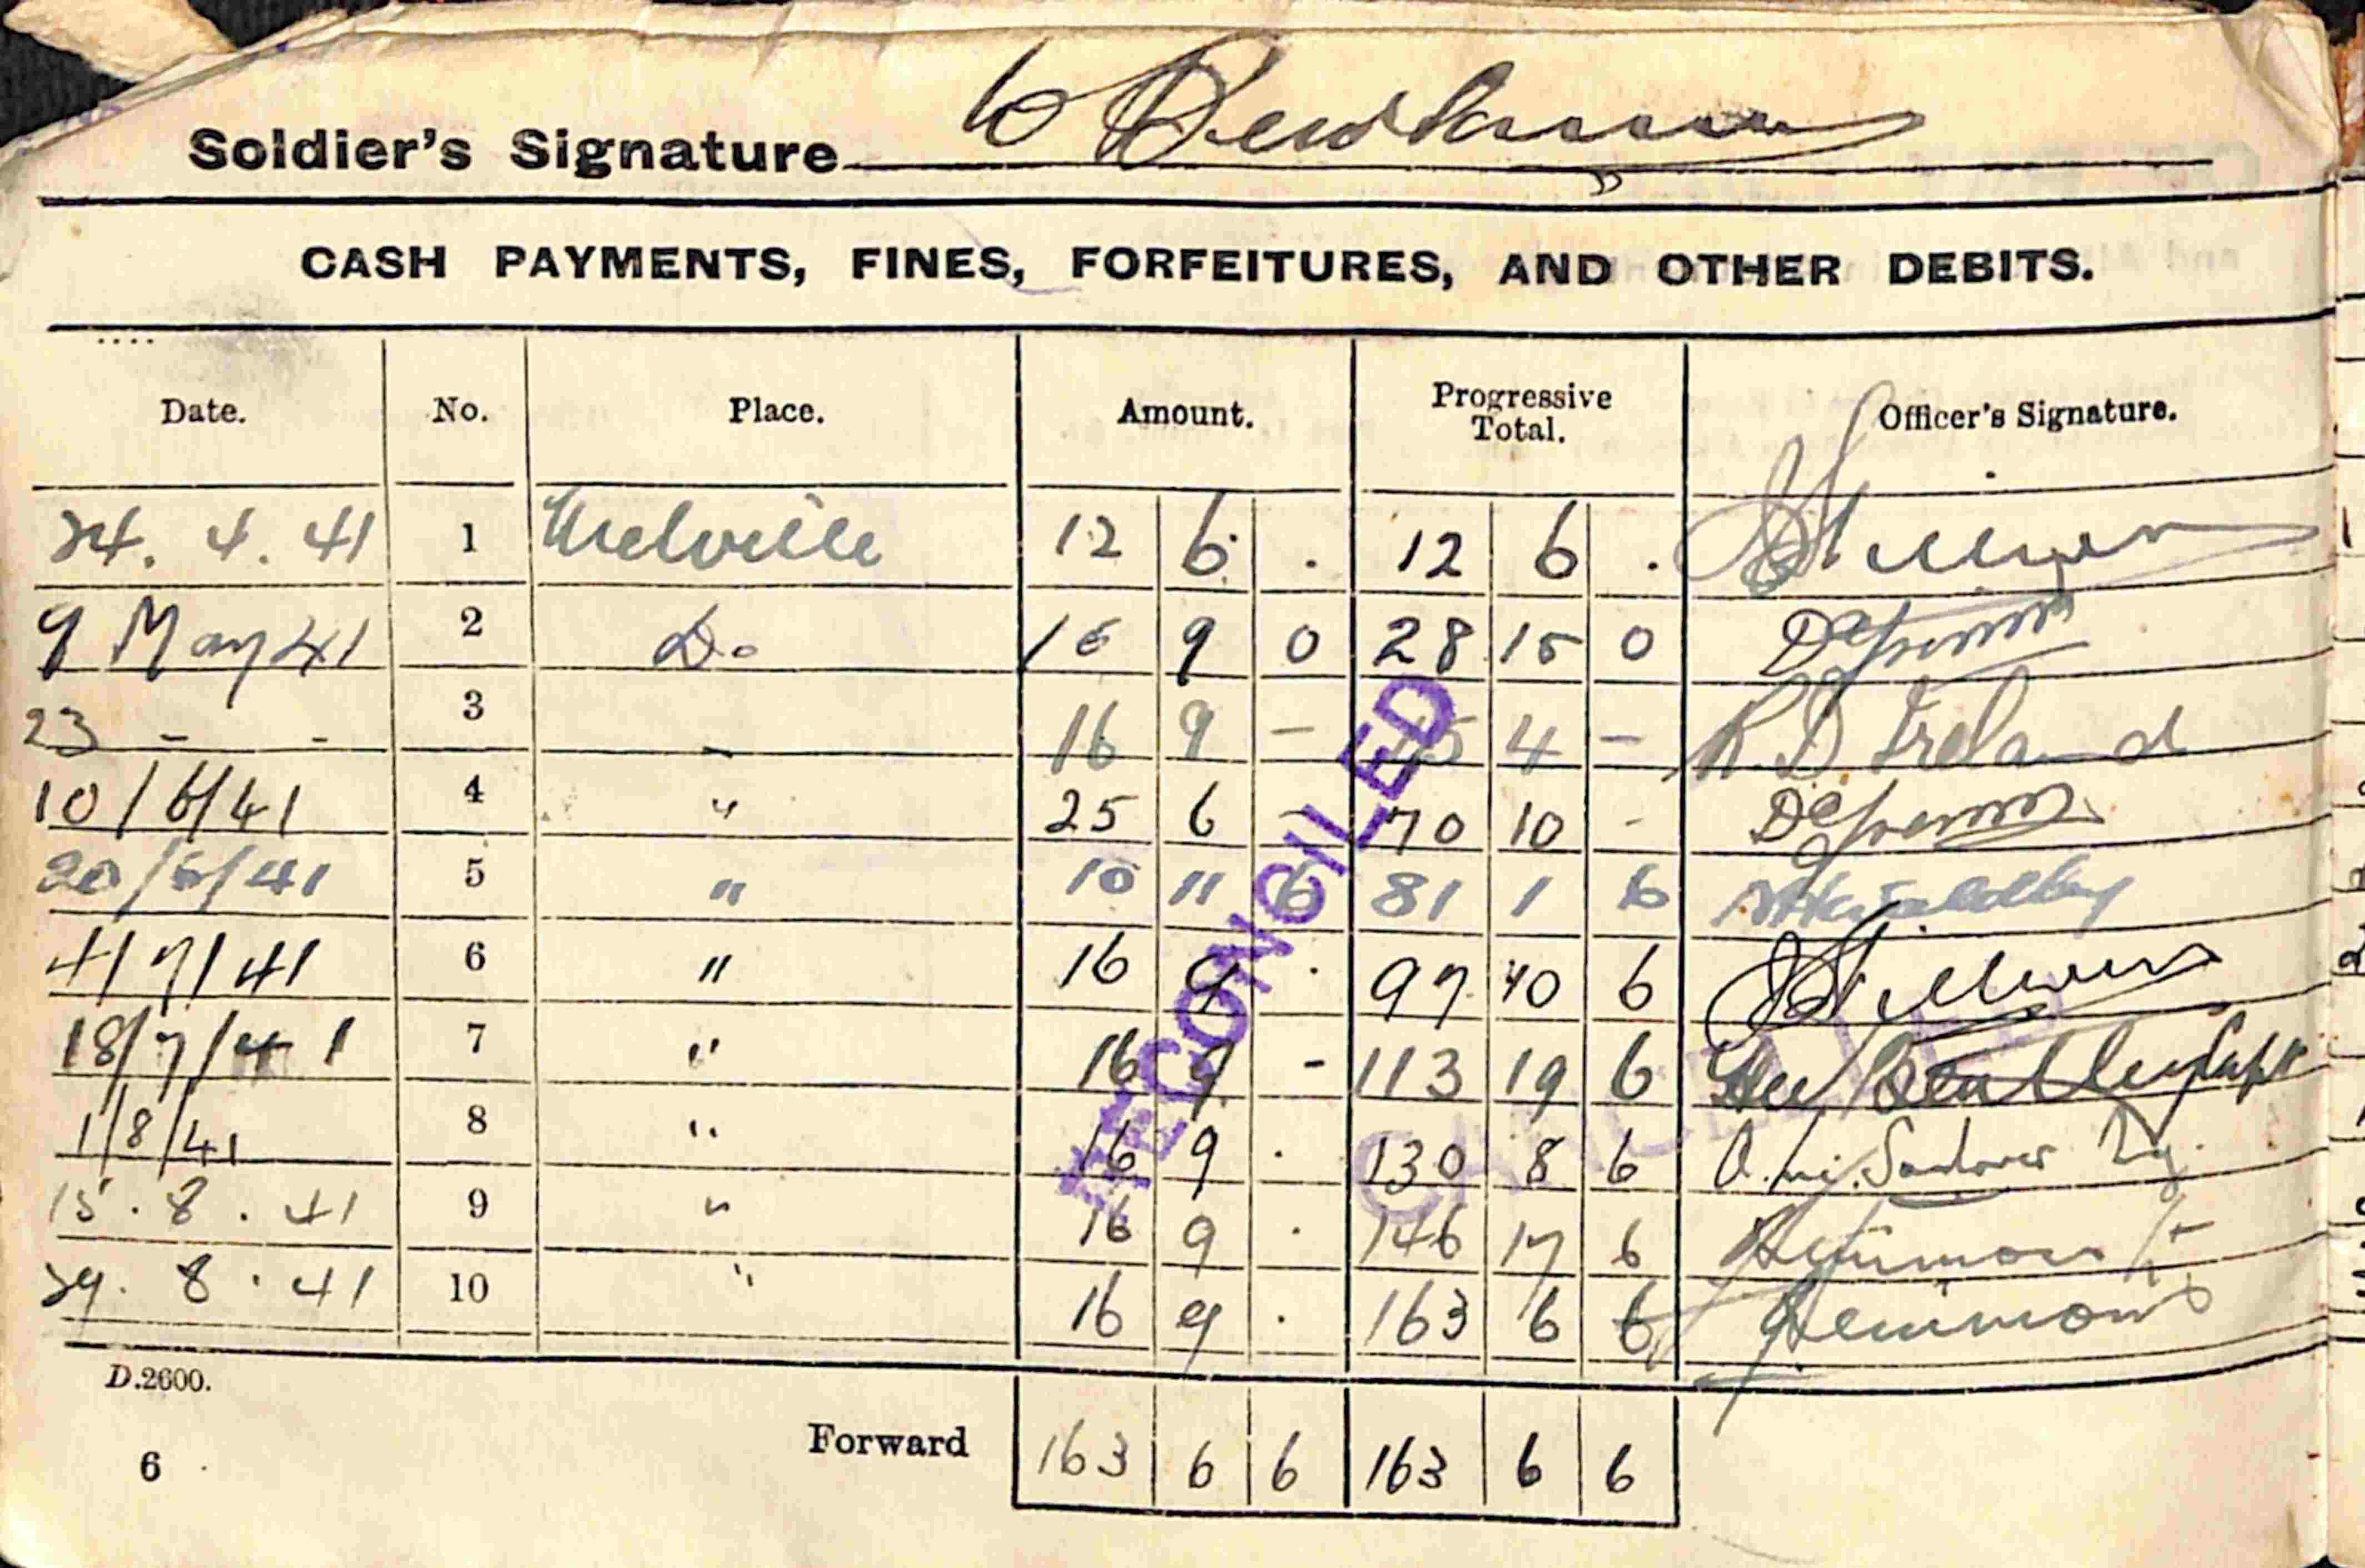 Soldier's Signature
CASH PAYMENTS, FINES, FORFEITURES, AND OTHER DEBITS.
Date. No. Place. Amount. Progressive Total. Officer's Signature.
24. 4. 41 1 Melville 12 6 . 12 6 .
9 May 41 2 Do 16 9 0 28 15 0
23 - - 3 " 16 9 - 45 4 - R.D Ireland
10/6/41 4 " 25 6 - 70 10 -
20/6/41 5 " 10 11 6 81 1 6
4/7/41 6 " 16 9 . 97 10 6
18/7/41 7 " 16 9 - 113 19 6
1/8/41 8 " 16 9 . 130 8 6
15. 8. 41 9 " 16 9 . 146 17 6
29. 8. 41 10 " 16 9 . 163 6 6
RECONCILED
D.2600.
Forward 163 6 6 163 6 6
6